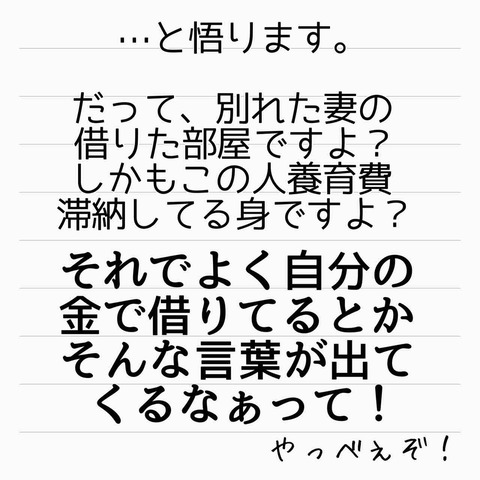 …と悟ります。
だって、別れた妻の
借りた部屋ですよ？
しかもこの人養育費
滞納してる身ですよ？
それでよく自分の
金で借りてるとか
そんな言葉が出て
くるなぁって！
やっべぇぞ！